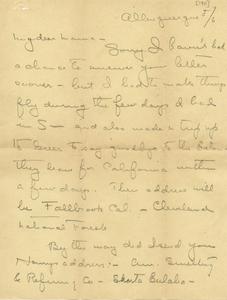 [1911]
Albuquerque 5/6
My dear Mama -
Sorry I haven't had
a chance to answer your letter
sooner - but I had to make things
fly during the few days I had
in S - and also made a trip up
to say goodbye to the
they leave for California within
a few days. Their address will
be Fallbrook Cal. - Cleveland
National Forest
By the way did I send you
address: - Am. Smelting
& Refining Co -